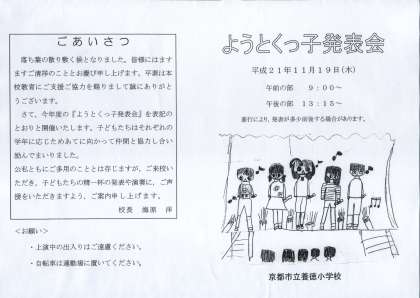 ごあいさつ
落ち葉の散り敷く候となりました。皆様にはます
ますご清祥のこととお慶び申し上げます。平素は本
校教育にご支援ご協力を賜りまして誠にありがと
うございます。
さて、今年度の『ようとくっ子発表会』を表記の
とおりに開催いたします。子どもたちはそれぞれの
学年に応じためあてに向かって仲間と協力し合い
励んでまいりました。
公私ともにご多用のこととは存じますが、ご来校い
ただき、子どもたちの精一杯の発表や演奏に、ご声
援をいただきますよう、ご案内申し上げます。
校長
＜お願い＞
・上演中の出入りはご遠慮ください。
・自転車は運動場に置いてください。
ようとくっ子発表会
平成２１年１１月１９日(木)
午前の部　９：００～
午後の部　１３：１５～
進行により、発表が多少前後する場合があります。
京都市立養徳小学校